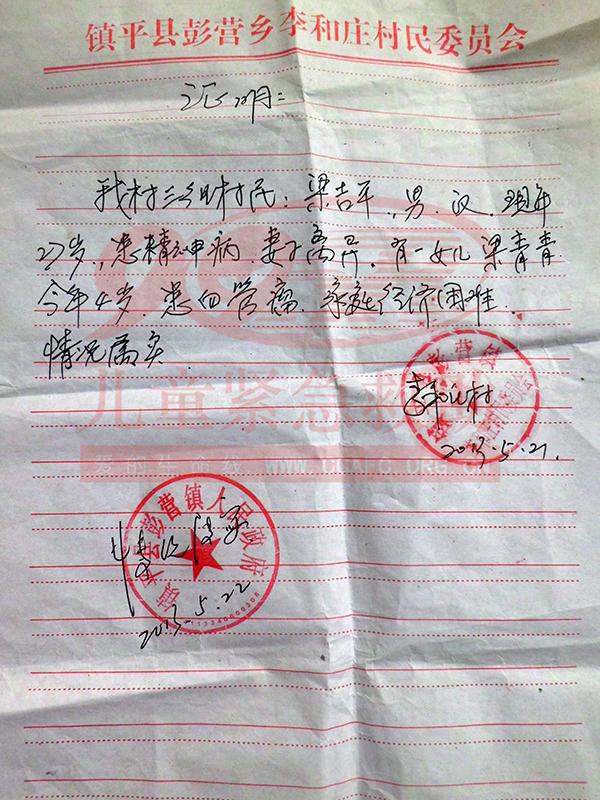 镇平县彭营乡李和庄村民委员会
证明:
我村三组村民:梁吉平,男,汉.现年
27岁,患精神病.妻子离异.有一女儿梁青青
今年4岁.患血管瘤.家庭经济困难.
情况属实.
李和庄村
2013.5.21.
镇平县彭营镇人民政府
情况属实
2013.5.22
儿童紧急救助